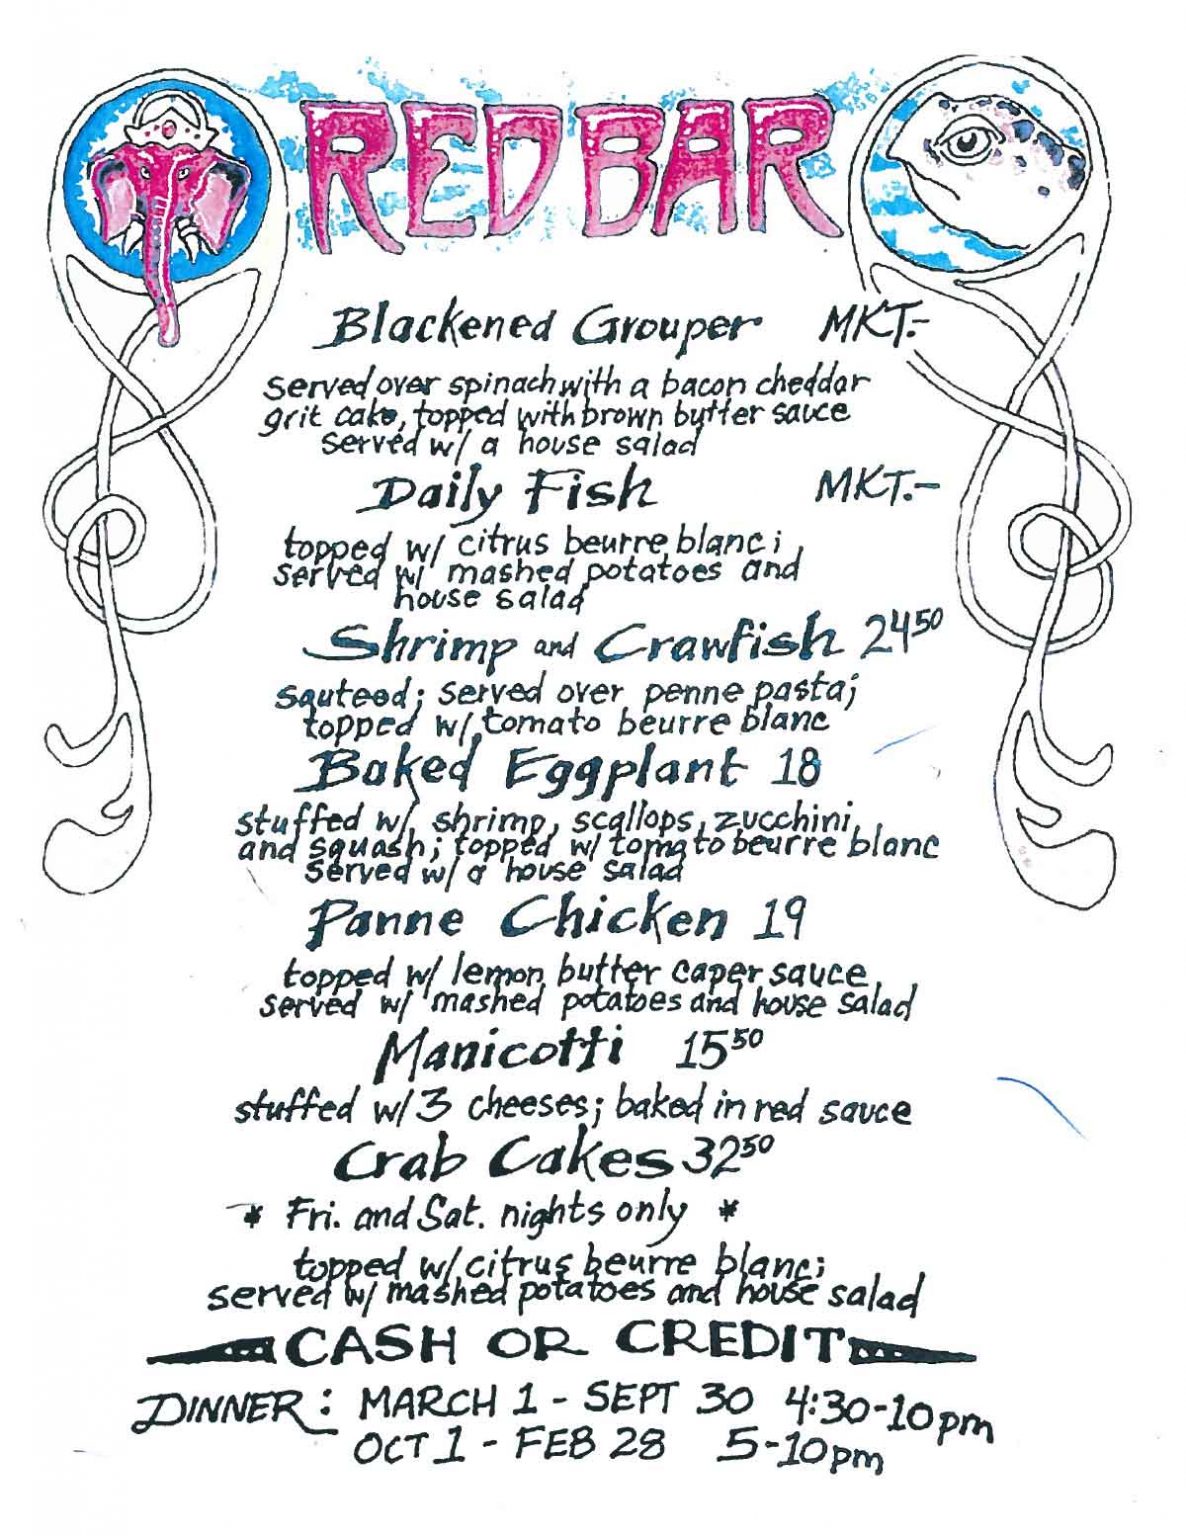 RED BAR
Blackened Grouper MKT.-
served over spinach with a bacon cheddar
grit cake, topped with brown butter sauce
served w/ a house salad
Daily Fish MKT.-
topped w/ citrus beurre blanc;
served w/ mashed potatoes and
house salad
Shrimp and Crawfish 24 50
sauteed; served over penne pasta;
topped w/ tomato beurre blanc
Baked Eggplant 18
stuffed w/ shrimp, scallops, zucchini,
and squash; topped w/ tomato beurre blanc
served w/ a house salad
Panne Chicken 19
topped w/ lemon butter caper sauce,
served w/ mashed potatoes and house salad
Manicotti 15 50
stuffed w/ 3 cheeses; baked in red sauce
Crab Cakes 32 50
* Fri. and Sat. nights only *
topped w/ citrus beurre blanc;
served w/ mashed potatoes and house salad
CASH OR CREDIT
DINNER: MARCH 1 - SEPT 30 4:30-10pm
OCT 1 - FEB 28 5-10pm